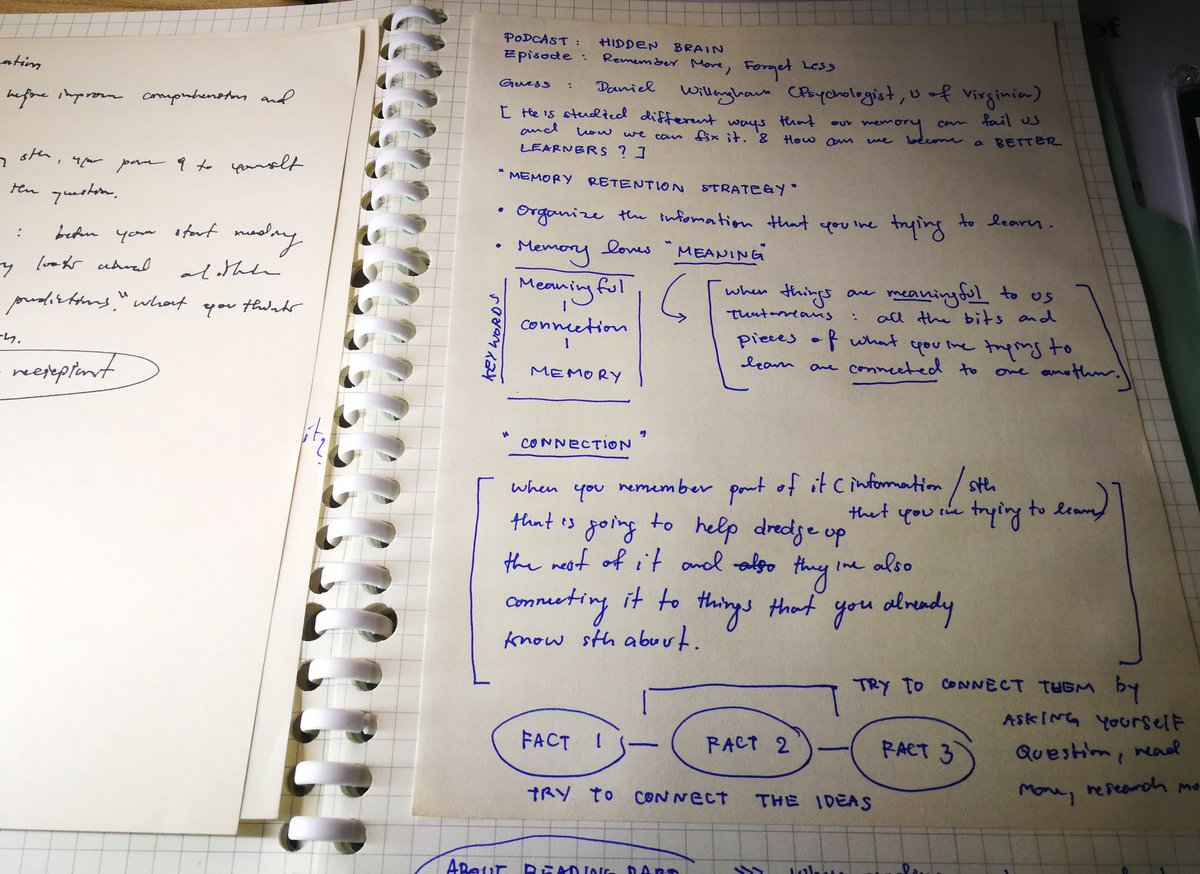 before improve comprehension and
sth, you pose q to yourself
question.
: before you start reading
predictions." what you think
PODCAST : HIDDEN BRAIN
Episode : Remember More, Forget Less
Guess : Daniel Willingham (Psychologist, U of Virginia)
[ He is studied different ways that our memory can fail us
and how we can fix it. & How can we become a BETTER
LEARNERS ? ]
"MEMORY RETENTION STRATEGY"
• Organize the infomation that you're trying to learn.
• Memory loves "MEANING"
KEYWORDS
Meaningful
connection
MEMORY
when things are meaningful to us
that means : all the bits and
pieces of what you're trying to
learn are connected to one another.
it?
"CONNECTION"
when you remember part of it (information / sth
that you're trying to learn)
that is going to help dredge up
the rest of it and also they're also
connecting it to things that you already
know sth about.
TRY TO CONNECT THEM by
ASKING YOURSELF
Question, read
More, research mo
FACT 1 — FACT 2 — FACT 3
TRY TO CONNECT THE IDEAS
ABOUT READING PART